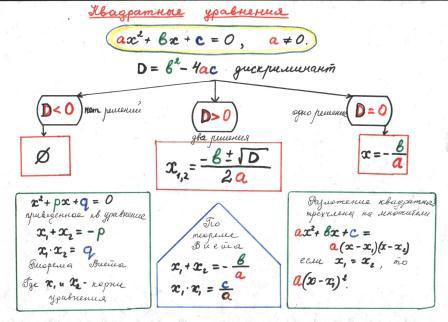 Квадратные уравнения
ax² + bx + c = 0, a ≠ 0.
D = b² - 4ac дискриминант
D < 0 нет решений
D > 0
два решения
одно решение D = 0
∅
x₁,₂ = (-b ± √D) / 2a
x = - b/a
x² + px + q = 0
приведенное кв. уравнение
x₁ + x₂ = -p
x₁ · x₂ = q
Теорема Виета
Где x₁ и x₂ - корни
уравнения
По
теореме
Виета
x₁ + x₂ = - b/a
x₁ · x₁ = c/a
Разложение квадратн.
трехчлена на множители
ax² + bx + c =
a(x - x₁)(x - x₂)
если x₁ = x₂, то
a(x - x₁)².